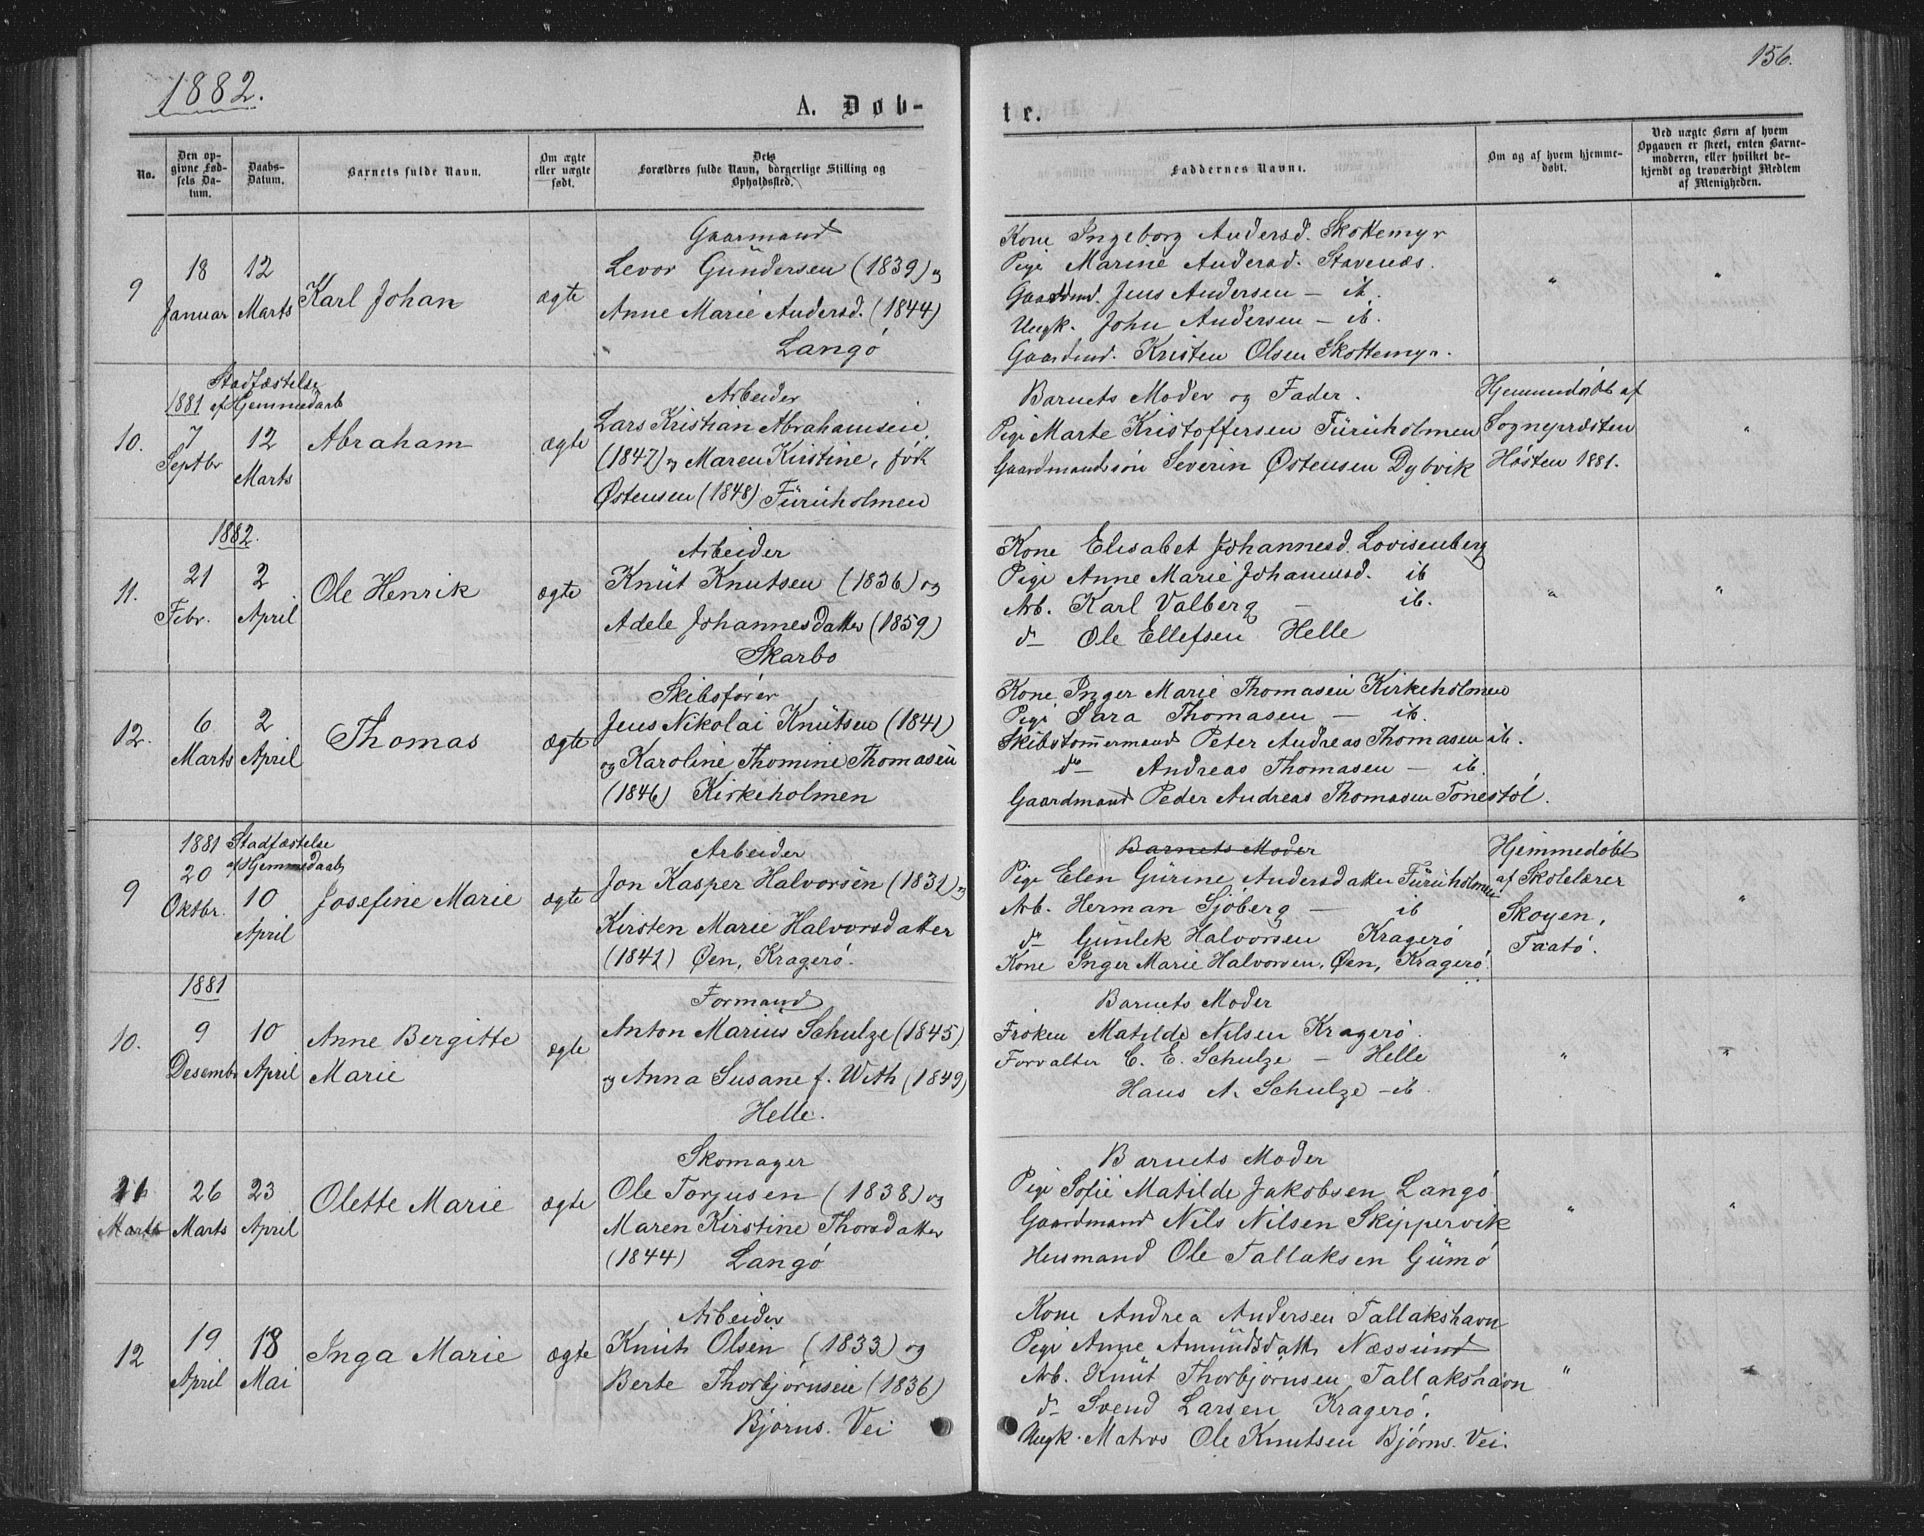 1882.
156.
A. Døb-
te.
No.
Den op-
givne Fød-
sels Da-
tum.
Daabs-
Datum.
Barnets fulde Navn.
Om ægte
eller uægte
født.
Dets
Forældres fulde Navn, borgerlige Stilling og
Opholdssted.
Faddernes Navne.
Om og af hvem hjemme-
døbt.
Ved uægte Børn af hvem
Opgaven er skeet, enten Barne-
moderen, eller hvilket be-
kjendt og troværdigt Medlem
af Menigheden.
9
18
Januar
12
Marts
Karl Johan
ægte
Gaarmand
Levor Gundersen (1839) og
Anne Marie Andersd. (1844)
Langø
Kone Ingeborg Andersd. Skottemyr
Pige Marine Andersd. Stavenæs.
Gaardmd. Jens Andersen - ib.
Ungk. John Andersen - ib.
Gaardmd. Kristen Olsen Skottemyr.
"
"
10.
1881
7
Septbr
Stadfæstelse
af Hjemmedaab
12
Marts
Abraham
ægte
Arbeider
Lars Kristian Abrahamsen
(1847) og Maren Kirstine, født
Østensen (1848) Furuholmen
Barnets Moder og Fader.
Pige Marte Kristoffersen Furuholmen
Gaardmandssøn Severin Østensen Dybvik
Hjemmedøbt af
Sognepræsten
Høsten 1881.
"
11.
1882.
21
Febr.
2
April
Ole Henrik
ægte
Arbeider
Knut Knutsen (1836) og
Adele Johannesdatter (1859)
Skarbo
Kone Elisabet Johannesd. Lovisenberg
Pige Anne Marie Johannesd. ib
Arb. Karl Valberg - ib.
do Ole Ellefsen Helle
"
"
12.
6
Marts
2
April
Thomas
ægte
Skibsfører
Jens Nikolai Knutsen (1841)
og Karoline Thomine Thomasen
(1846) Kirkeholmen
Kone Inger Marie Thomasen Kirkeholmen
Pige Sara Thomasen - ib.
Skibstømmermand Peter Andreas Thomasen ib.
do - Andreas Thomasen - ib.
Gaardmand Peder Andreas Thomasen Tonestøl.
9
1881
20
Oktbr.
Stadfæstelse
af Hjemmedaab
10
April
Josefine Marie
ægte
Arbeider
Jon Kasper Halvorsen (1831) og
Kirsten Marie Halvorsdatter
(1841) Øen, Kragerø.
Barnets Moder
Pige Elen Gurine Andersdatter Furuholmen
Arb. Herman Sjøberg - ib
do Gunlek Halvorsen Kragerø
Kone Inger Marie Halvorsen, Øen, Kragerø.
Hjemmedøbt
af Skolelærer
Skoyen,
Taatø.
"
10.
1881
9
Desembr
10
April
Anne Bergitte
Marie
ægte
Formand
Anton Marius Schulze (1845)
og Anna Susane f. With (1849)
Helle.
Barnets Moder
Frøken Matilde Nilsen Kragerø.
Forvalter C. E. Schulze - Helle
Hans A. Schulze - ib.
"
"
11
Marts
26
Marts
23
April
Olette Marie
ægte
Skomager
Ole Torjusen (1838) og
Maren Kirstine Thorsdatter
(1844) Langø
Barnets Moder
Pige Sofie Matilde Jakobsen Langø
Gaardmand Nils Nilsen Skippervik
Husmand Ole Tallaksen Gumø
"
"
12
19
April
18
Mai
Inga Marie
ægte
Arbeider
Knut Olsen (1833) og
Berte Thorbjørnsen (1836)
Bjørns. Vei
Kone Andrea Andersen Tallakshavn
Pige Anne Amundsdatt. Næssund
Arb. Knut Thorbjørnsen, Tallakshavn
do Svend Larsen Kragerø.
Ungk. Matros Ole Knutsen Bjørns. Vei.
"
"